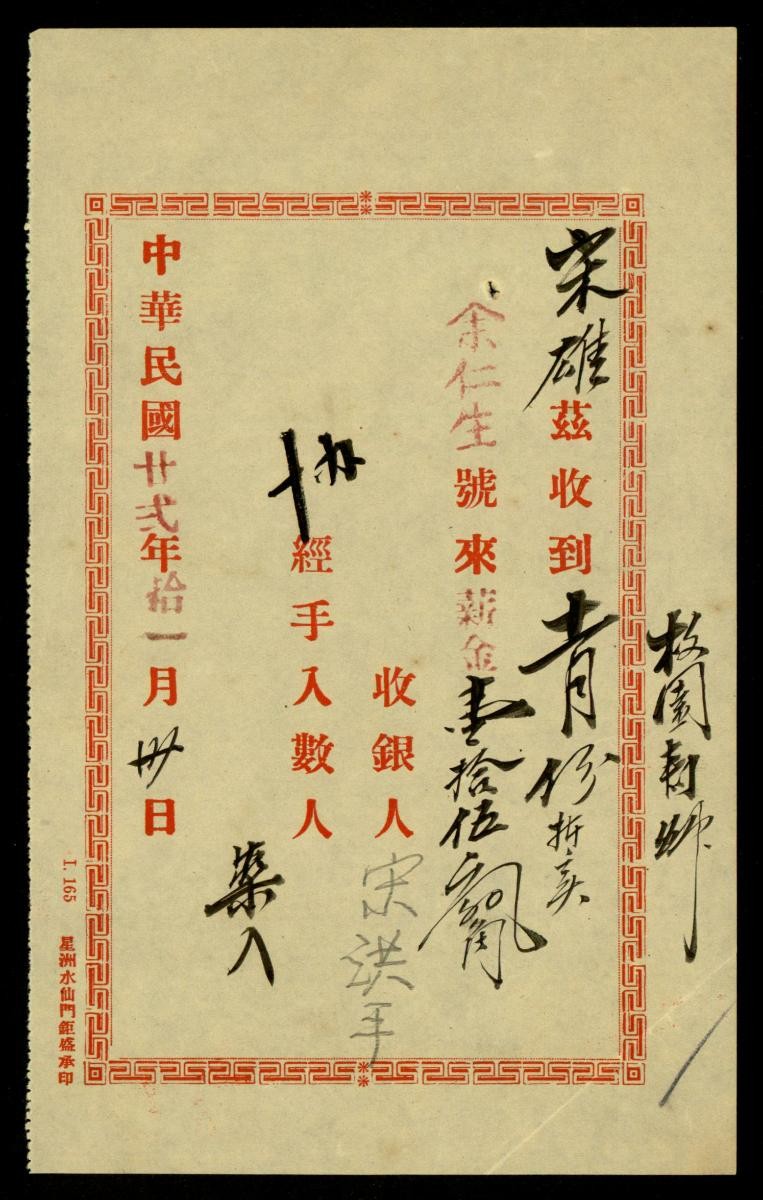 枚園
宋雄茲收到十一月份折实
余仁生號來薪金壹拾伍
收銀人宋洪手
經手入數人
入
中華民國廿弍年拾一月卅日
I. 165 星洲水仙門鉅盛承印